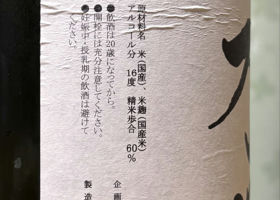 原材料名 米(国産)、米麹(国産米)
アルコール分 16度 精米歩合 60%
●飲酒は20歳になってから。
●開栓には充分注意してください。
●妊娠中・授乳期の飲酒は避けて
ください。
企画
製造